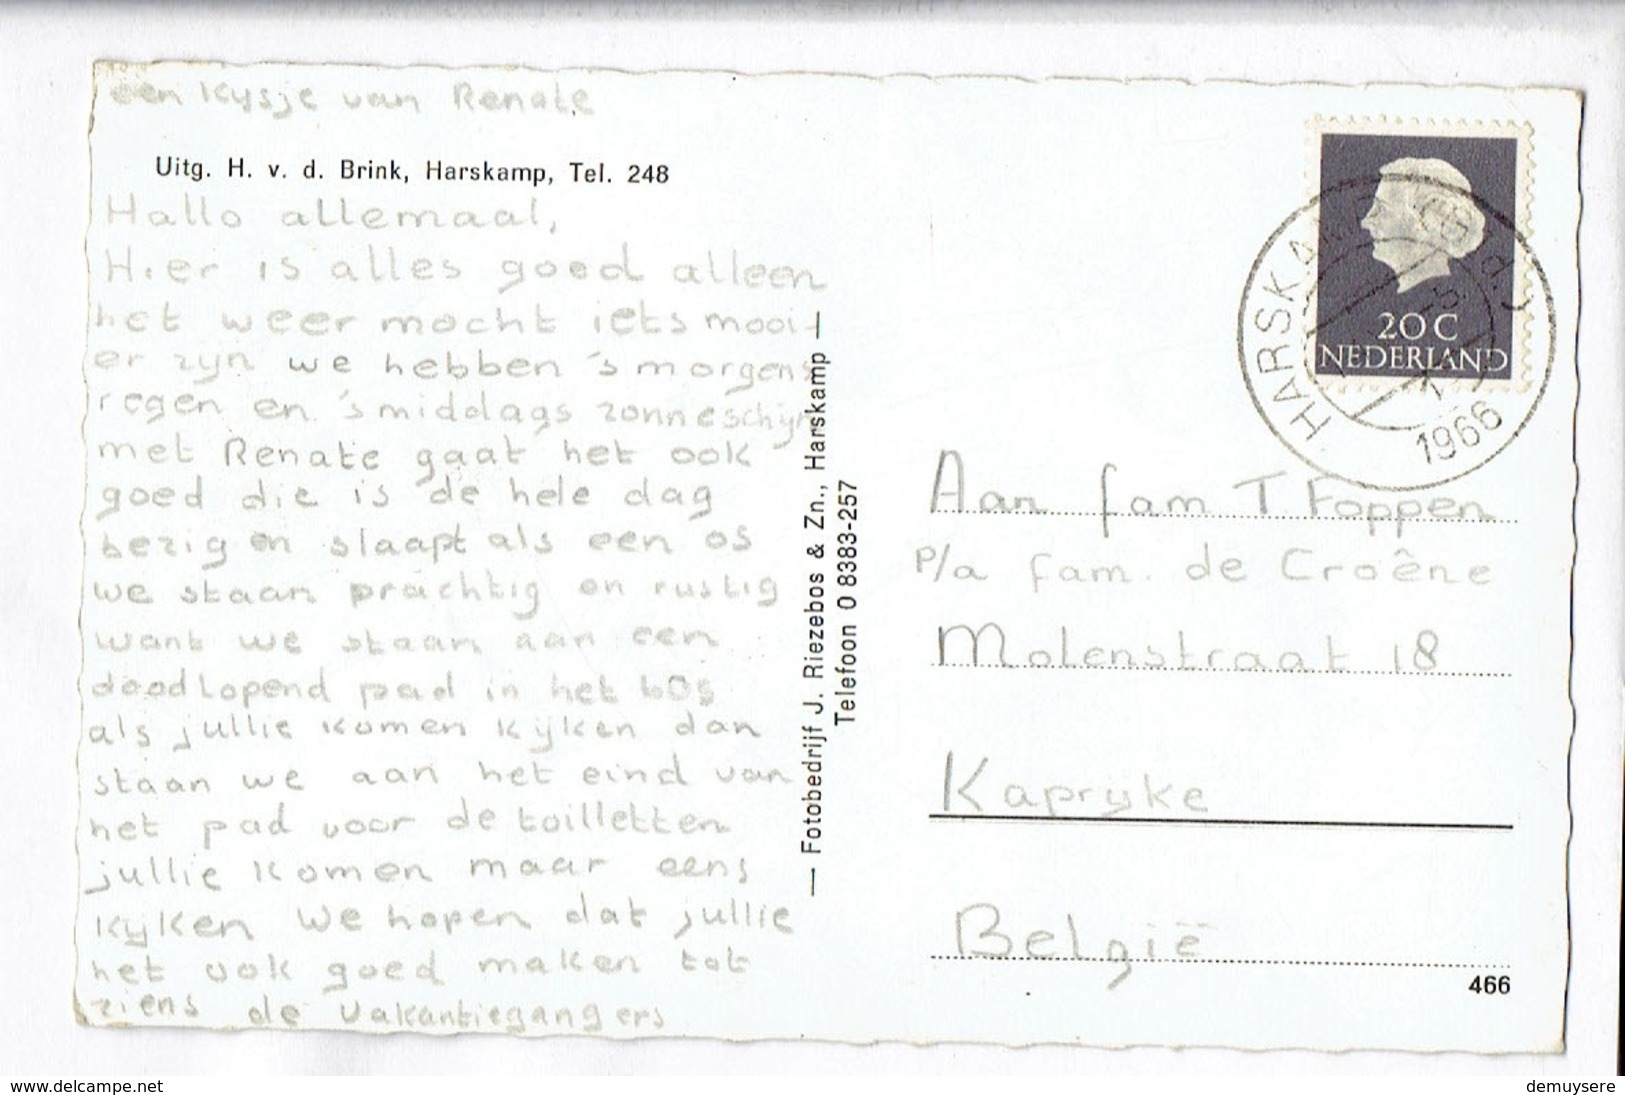 een Kysje van Renate
Uitg. H. v. d. Brink, Harskamp, Tel. 248
Hallo allemaal,
Hier is alles goed alleen
het weer mocht iets mooi-
er zijn we hebben 's morgens
regen en 's middags zonneschijn
met Renate gaat het ook
goed die is de hele dag
bezig en slaapt als een os
we staan prachtig en rustig
want we staan aan een
doodlopend pad in het bos
als jullie komen kijken dan
staan we aan het eind van
het pad voor de toilletten
jullie komen maar eens
kijken we hopen dat jullie
het ook goed maken tot
ziens de vakantiegangers
— Fotobedrijf J. Riezebos & Zn., Harskamp —
Telefoon 0 8383-257
20 C
NEDERLAND
1966
Aan fam T Foppen
p/a fam. de Croêne
Molenstraat 18
Kaprijke
België
466
www.delcampe.net
demuysere